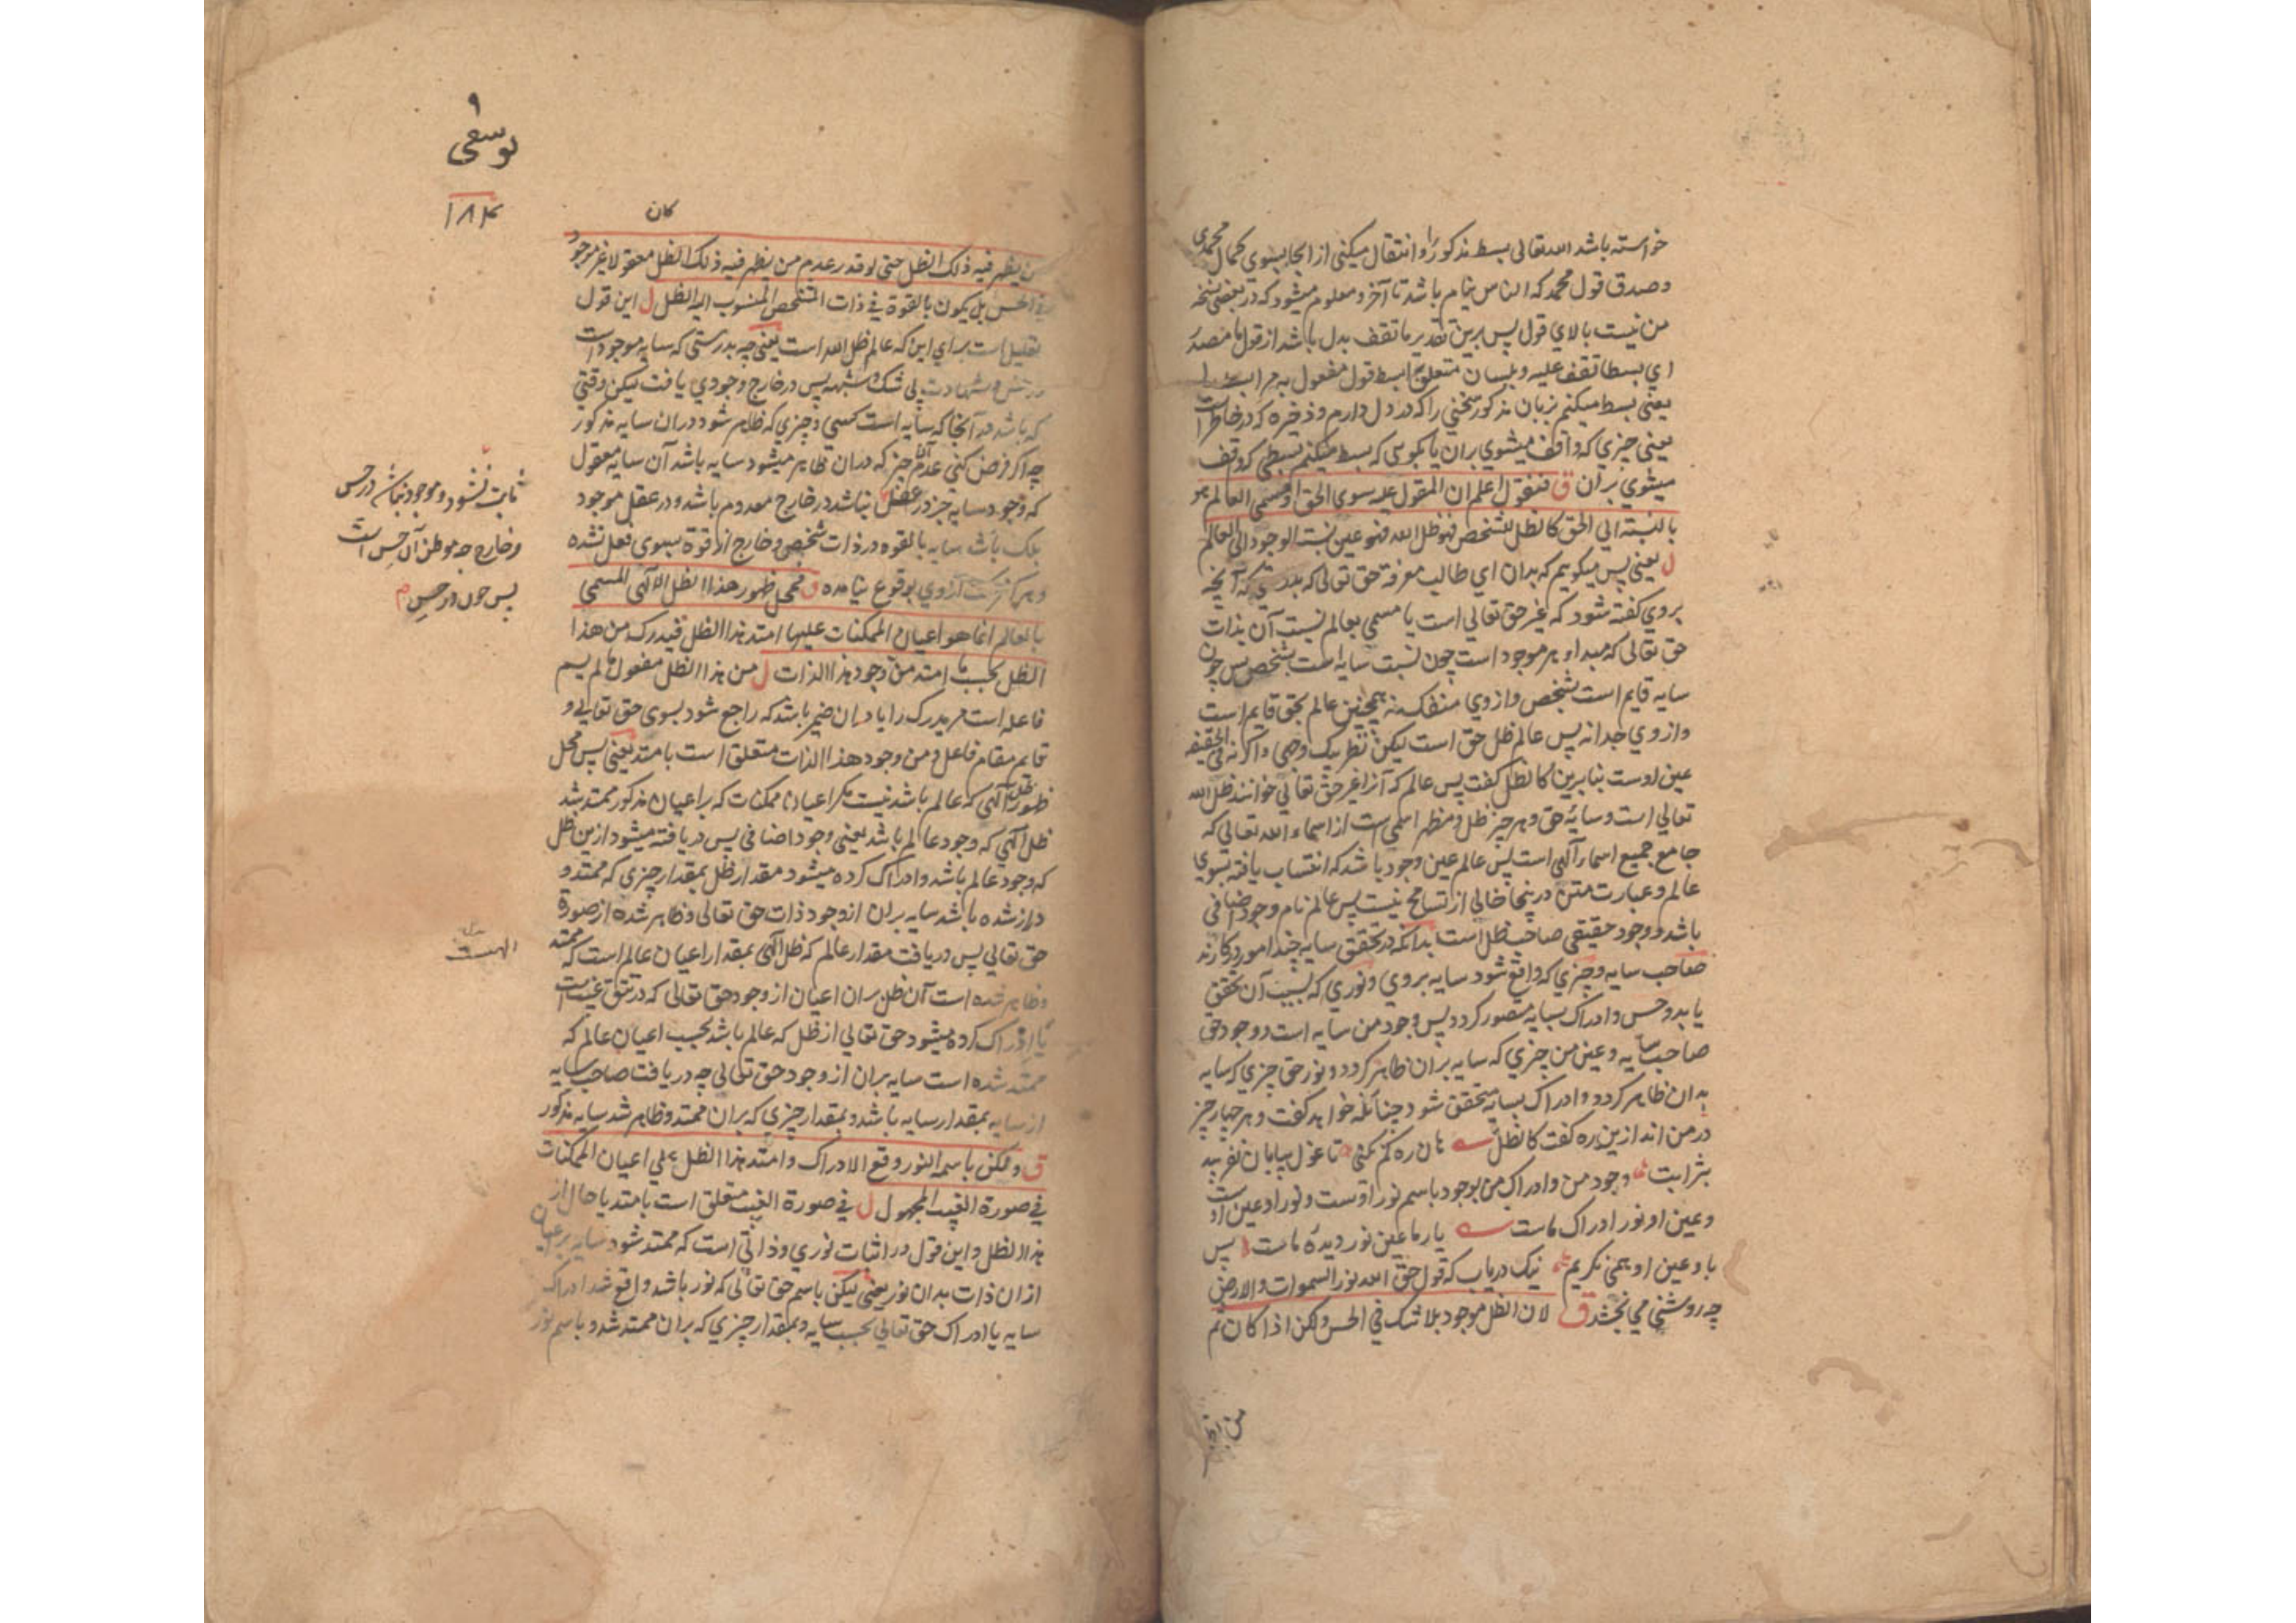 خواسته باشد الله تعالی بسط مذکور را و انتقال میکنی از انجا بسوی کمال محمدی
و صدق قول محمد که الناس نیام باشد تا آخر و معلوم میشود که در بعضی نسخه
من نیست بالای قول پس برین تقدیر ما تقف بدل باشد از قول ما
ای بسطا تقف علیه و بلسان متعلق بابسط قول مفعول به مر ابسط را
یعنی بسط میکنم بزبان مذکور سخنی را که در دل دارم و ذخیره که در خاطر است
یعنی چیزی که واقف میشوی بران یا بگوی که بسط میکنم بسطی که وقف
میشوی بران ق فنقول اعلم ان المقول علیه سوی الحق او مسمی العالم هو
بالنسبته الی الحق کالظل للشخص فهو ظل الله فهو عین نسبة الوجود الی العالم
ل یعنی پس میگویم که بدان ای طالب معرفة حق تعالی که بدرستیکه آنچه
بروی گفته شود که غیر حق تعالی است یا مسمی بعالم نسبت آن بذات
حق تعالی که مبداء هر موجود است چون نسبت سایه است بشخص پس چون
سایه قایم است بشخص و از وی منفک نه همچنین عالم بحق قایم است
و از وی جدا نه پس عالم ظل حق است لیکن بنظر یک وجهی و اگرنه فی الحقیقه
عین اوست بنا برین کالظل گفت پس عالم که آنرا غیر حق تعالی خوانند ظل الله
تعالی است و سایهٔ حق و هر چیز ظل و مظهر اسمی است از اسماء الله تعالی که
جامع جمیع اسماء آلهی است پس عالم عین وجود باشد که انتساب یافته بسوی
عالم و عبارت متن درینجا خالی از تسامح نیست پس عالم نام وجود اضافی
باشد و وجود حقیقی صاحب ظل است بدانکه در تحقق سایه چند امور در کارند
صاحب سایه و چیزی که واقع شود سایه بروی و نوری که بسبب آن تحقق
یابد و حس و ادراک بسایه متصور گردد پس وجود من سایه است و وجود حق
صاحب سایه و عین من چیزی که سایه بران ظاهر گردد و نور حق چیزی که سایه
بدان ظاهر گردد و ادراک بسایه متحقق شود چنانکه خواهد گفت و هر چهار چیز
در من اند ازین ره گفت کالظل هان ره گم نکنی تا غول بیابان نفریبد
بشرابت وجود من و ادراک من بوجود باسم نور اوست و نور او عین اوست
و عین او نور ادراک ماست یار ما عین نور دیدهٔ ماست پس
با و عین او همی نگریم نیک دریاب که قول حق الله نور السموات والارض
چه روشنی می بخشد ق لان الظل موجود بلا شک فی الحس ولکن اذا کان ثم
من یظهر
۹
یوسفی
۱۸۴
کان
من یظهر فیه ذلک الظل حتی لو قدر عدم من یظهر فیه ذلک الظل معقولا غیر موجود
فی الحس بل یکون بالقوة فی ذات الشخص المنسوب الیه الظل ل این قول
تعلیل است برای این که عالم ظل الله است یعنی چه بدرستی که سایه موجود است
در حس و شهادت بی شک و شبهه پس در خارج وجودی یافت لیکن وقتی
که باشد در آنجا که سایه است کسی و چیزی که ظاهر شود دران سایه مذکور
چه اگر فرض کنی عدم آن چیز که دران ظاهر میشود سایه باشد آن سایه معقول
که وجود سایه جز در عقل نباشد در خارج معدوم باشد و در عقل موجود
بلک باشد سایه بالقوه در ذات شخص و خارج از قوة بسوی فعل نشده
و هرگز از وی بوقوع نیامده ق فمحل ظهور هذا الظل الآلهی المسمی
بالعالم انما هو اعیان الممکنات علیها امتد هذا الظل فیدرک من هذا
الظل بحسب ما امتد من وجود هذا الذات ل من هذا الظل مفعول ما لم یسم
فاعله است مر یدرک را یا دران ضمیر باشد که راجع شود بسوی حق تعالی و
قایم مقام فاعل و من وجود هذا الذات متعلق است بامتد یعنی پس محل
ظهور ظل آلهی که عالم باشد نیست مگر اعیان ممکنات که بر اعیان مذکور ممتد شد
ظل آلهی که وجود عالم باشد یعنی وجود اضافی پس دریافته میشود ازین ظل
که وجود عالم باشد و ادراک کرده میشود مقدار ظل بمقدار چیزی که ممتد و
دراز شده باشد سایه بران از وجود ذات حق تعالی و ظاهر شده از صورة
حق تعالی پس دریافت مقدار عالم که ظل آلهی بمقدار اعیان عالم است که ممتد
و ظاهر شده است آن ظل بران اعیان از وجود حق تعالی که در تتق غیب است
یا ادراک کرده میشود حق تعالی از ظل که عالم باشد بحسب اعیان عالم که
ممتد شده است سایه بران از وجود حق تعالی چه دریافت صاحب سایه
از سایه بمقدار سایه باشد و بمقدار چیزی که بران ممتد و ظاهر شد سایه مذکور
ق ولکن باسمه النور وقع الادراک وامتد هذا الظل علی اعیان الممکنات
فی صورة الغیب المجهول ل فی صورة الغیب متعلق است بامتد یا حال از
هذا الظل و این قول در اثبات نوری و ذاتی است که ممتد شود سایه بر اعیان
ازان ذات بدان نور یعنی لیکن باسم حق تعالی که نور باشد واقع شد ادراک
سایه یا ادراک حق تعالی بحسب سایه و بمقدار چیزی که بران ممتد شد و باسم نور
ثابت نشود و موجود نباشد در حس
و خارج چه موطن آن حس است
پس چون در حس